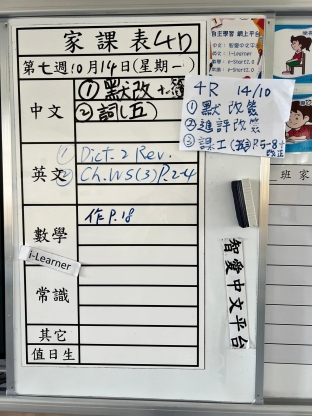 家課表4D
第七週10月14日(星期一)
中文
①默改+簽
②詞(五)
英文
① Dict. 2 Rev.
② Ch. WS(3) P.2-4
數學
作P.18
i-Learner
常識
其它
值日生
4R 14/10
①默改簽
②進評改簽
③課工(我)P.5-8+
改正
自主學習 網上平台
中文：智愛中文平台
智愛中文平台
班 家